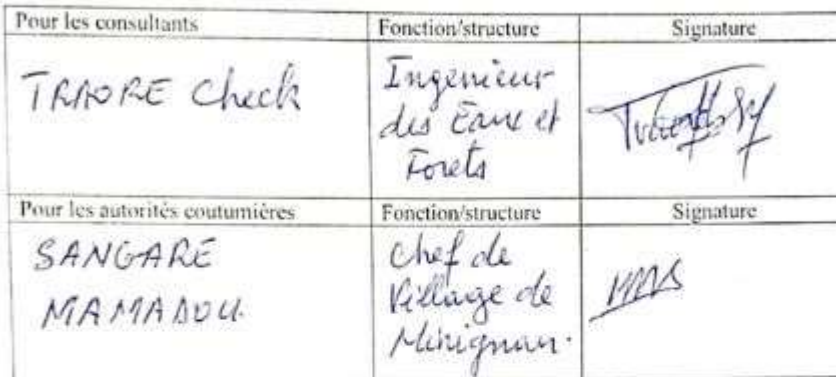 Pour les consultants Fonction/structure Signature
TRAORE Check Ingenieur
des Eaux et
Forets
Pour les autorités coutumières Fonction/structure Signature
SANGARE Chef de
MAMADOU Village de
Minignan.